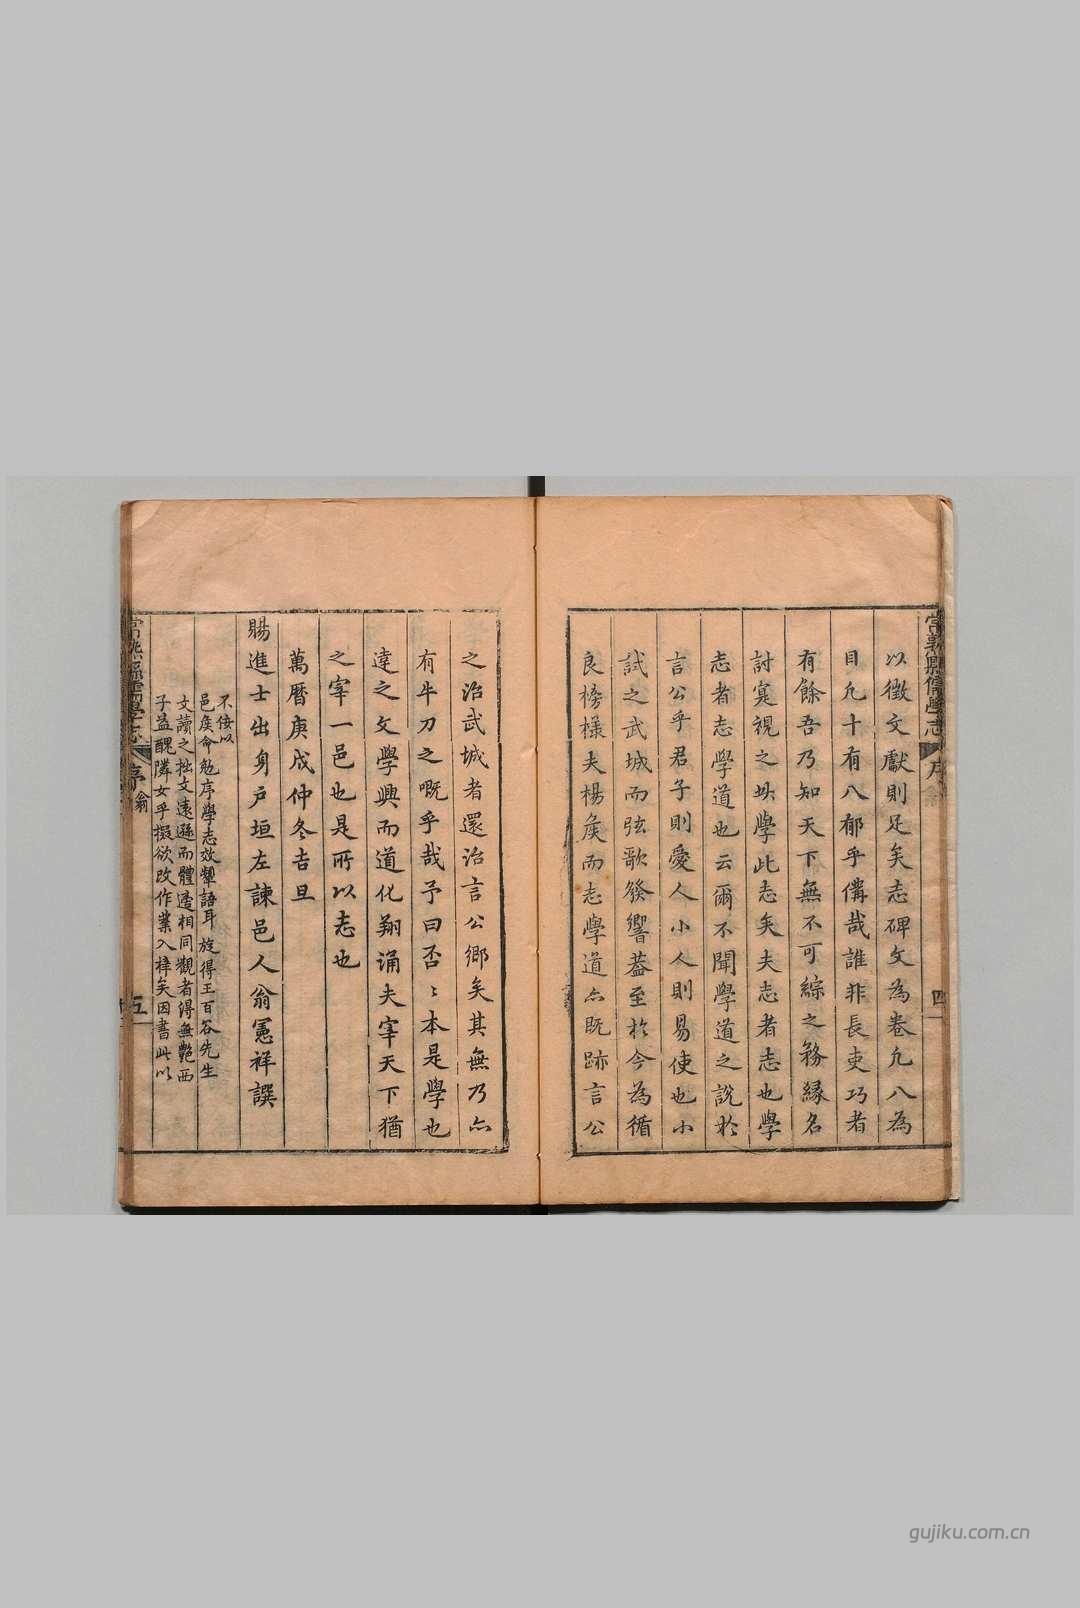 常熟縣儒學志 序 翁 四
以徵文獻則足矣志碑文為卷凡八為
目凡十有八郁乎備哉誰非長吏巧者
有餘吾乃知天下無不可綜之務緣名
討寔視之垁學此志矣夫志者志也學
志者志學道也云爾不聞學道之說於
言公乎君子則愛人小人則易使也小
試之武城而弦歌發響葢至於今為循
良榜樣夫楊矦而志學道亦既跡言公
之治武城者還治言公鄉矣其無乃亦
有牛刀之嘅乎哉予曰否〻本是學也
達之文學興而道化翔誦夫宰天下猶
之宰一邑也是所以志也
萬曆庚戌仲冬吉旦
賜進士出身戶垣左諫邑人翁憲祥譔
不佞以
邑矦命勉序學志效顰語耳旋得王百谷先生
文讀之拙文遠遜而體適相同觀者得無艷西
子益醜隣女乎擬欲改作業入梓矣因書此以
常熟縣儒學志 序 翁 五
gujiku.com.cn